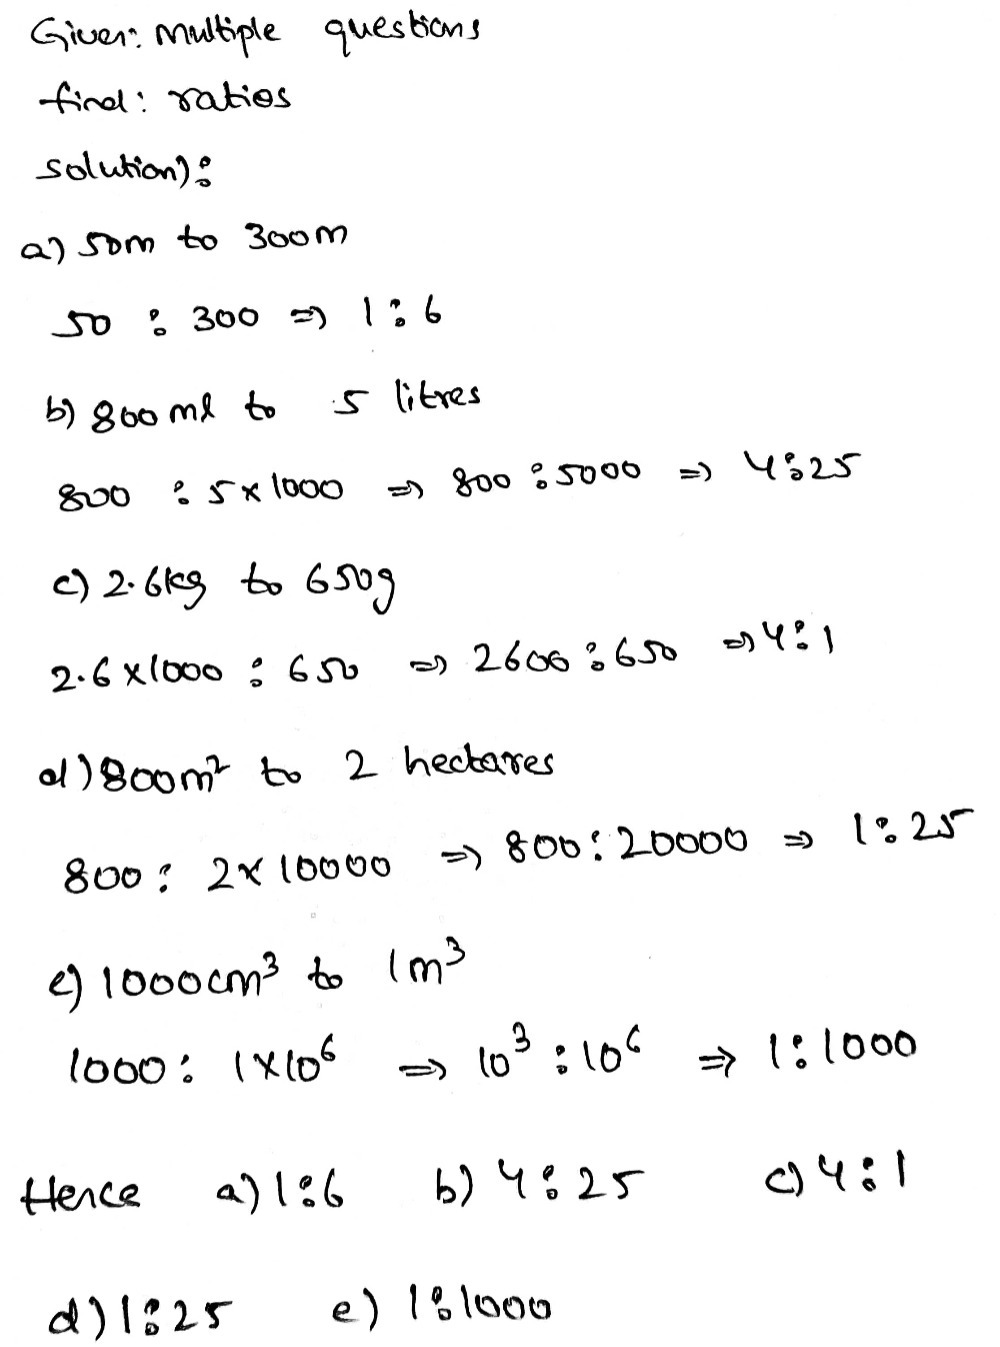 Given: Multiple questions
find: ratios
solution):
a) 50m to 300m
50 : 300 => 1:6
b) 800 ml to 5 litres
800 : 5 x 1000 => 800 : 5000 => 4:25
c) 2.6kg to 650g
2.6 x 1000 : 650 => 2600 : 650 => 4:1
d) 800m² to 2 hectares
800 : 2 x 10000 => 800 : 20000 => 1:25
e) 1000cm³ to 1m³
1000 : 1 x 10⁶ => 10³ : 10⁶ => 1:1000
Hence a) 1:6 b) 4:25 c) 4:1
d) 1:25 e) 1:1000